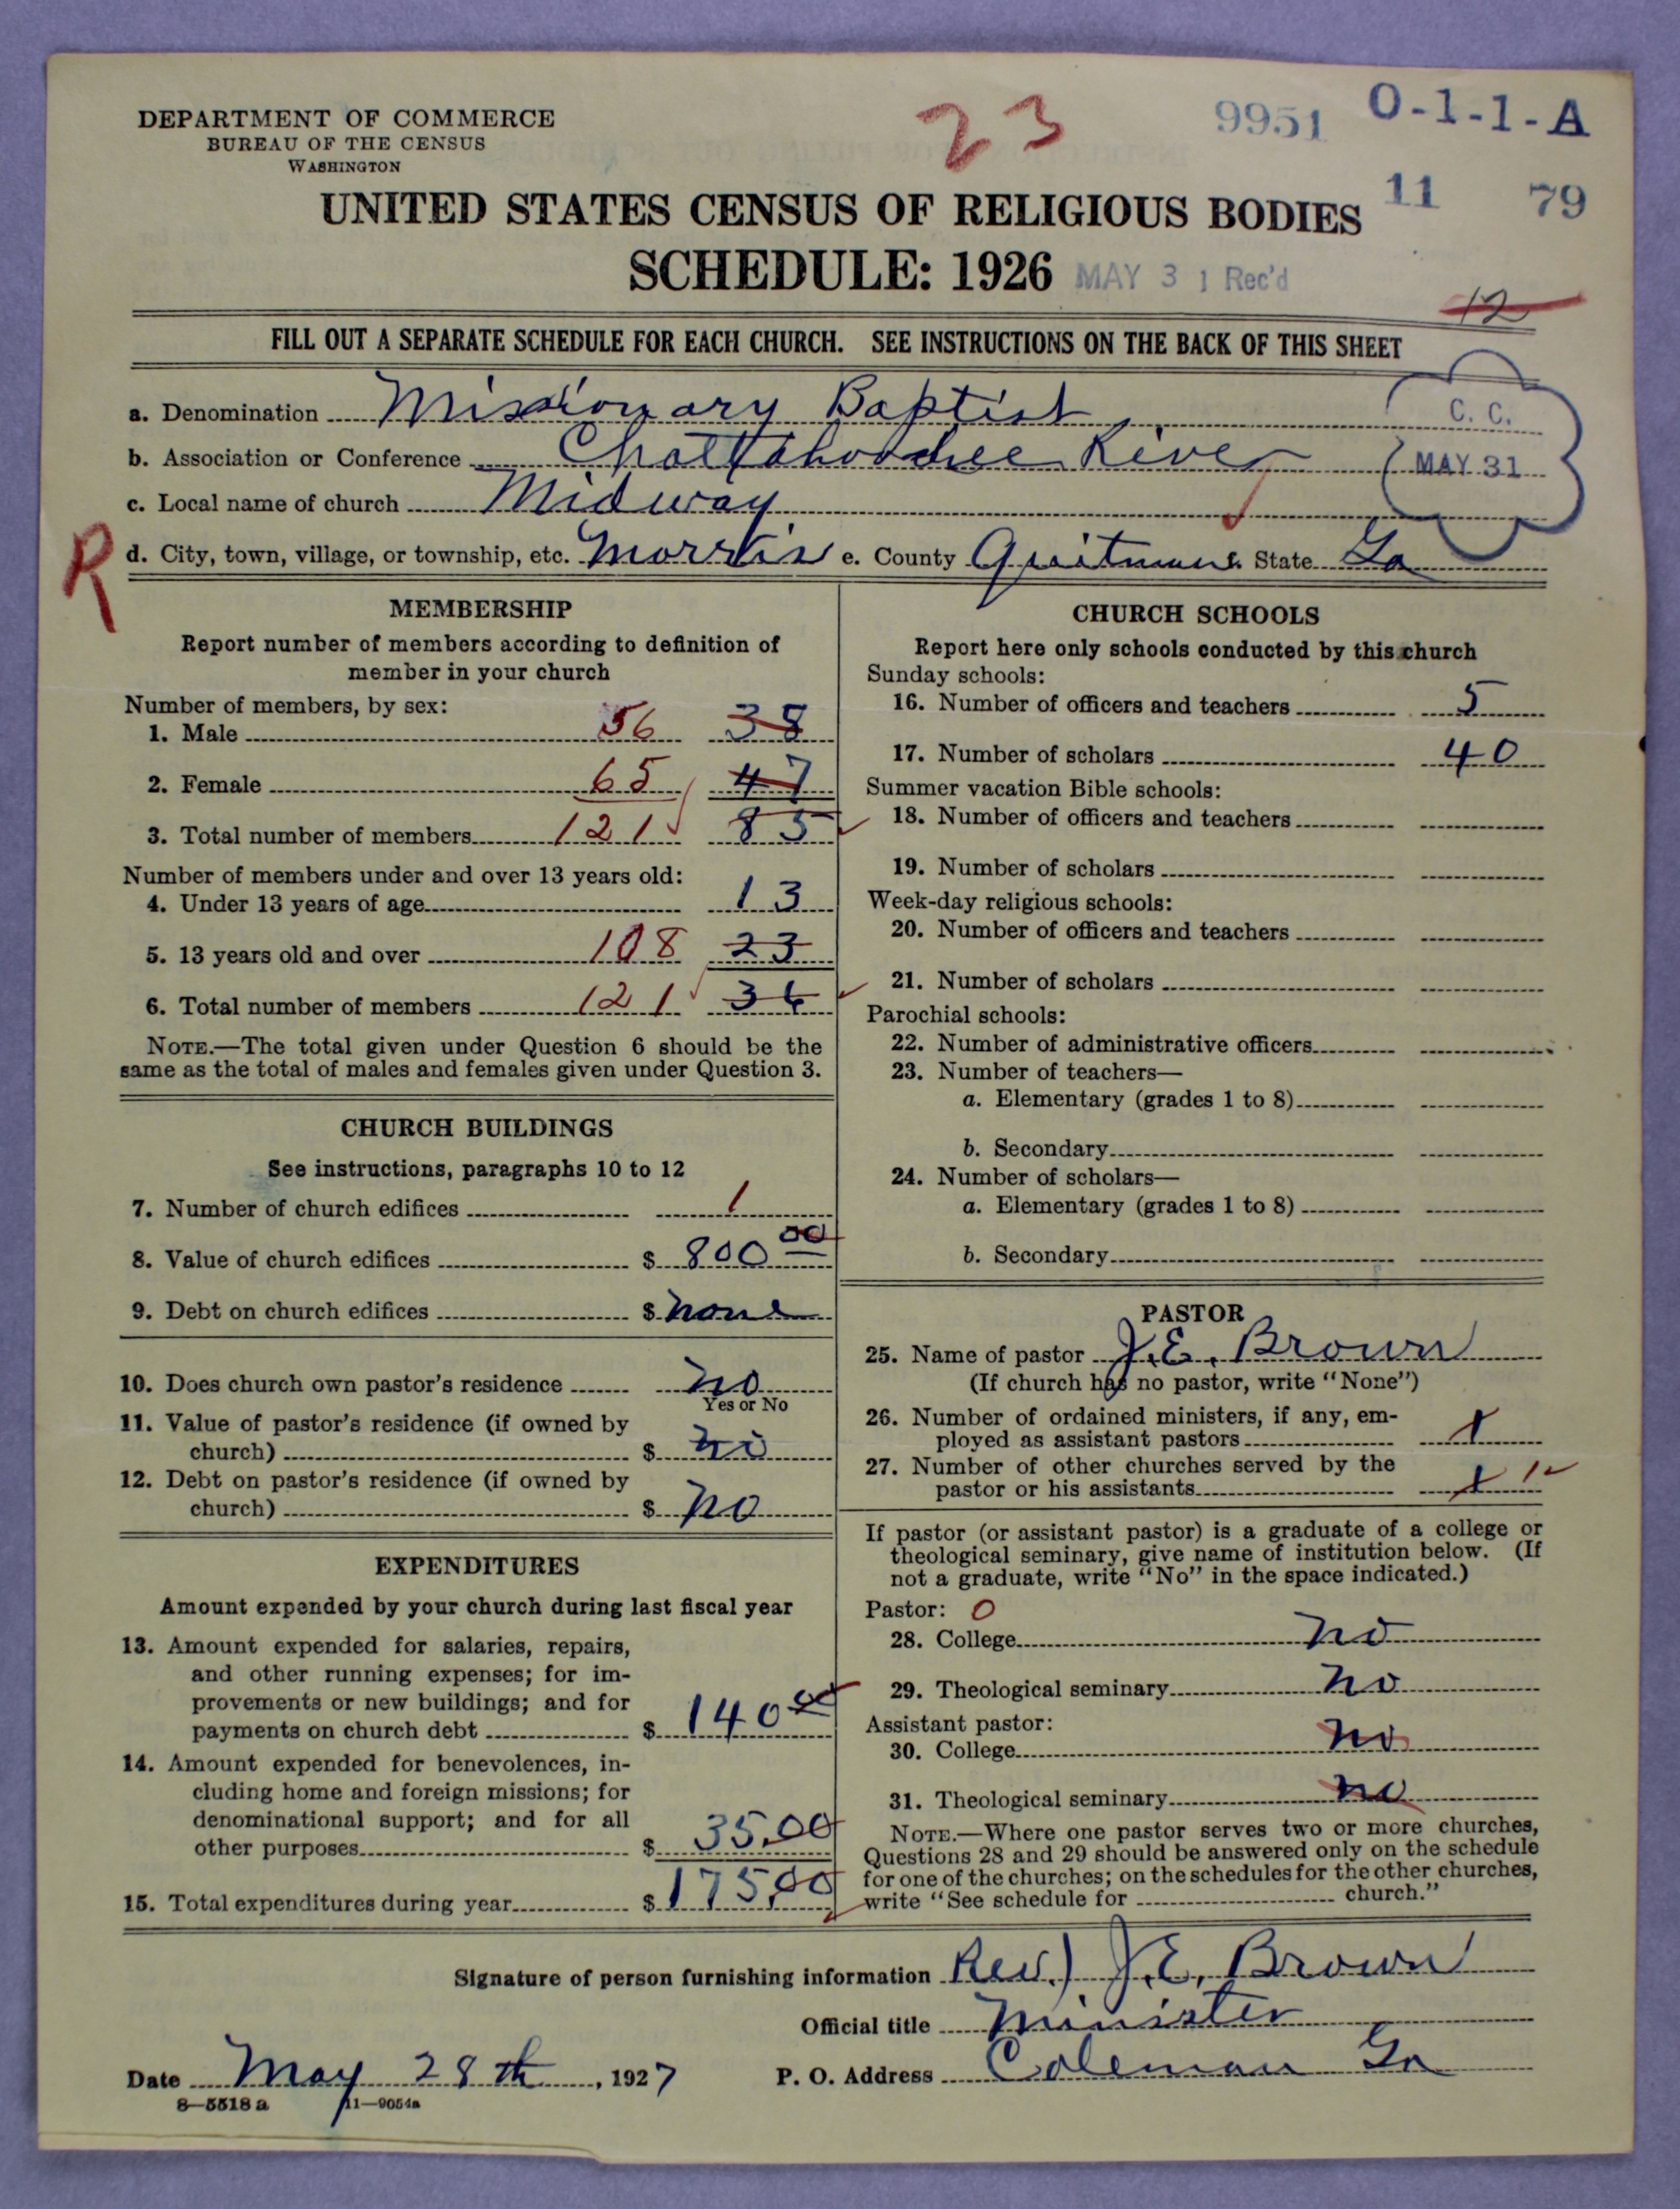 DEPARTMENT OF COMMERCE
BUREAU OF THE CENSUS
WASHINGTON
23
9951 O-1-1-A
11 79
UNITED STATES CENSUS OF RELIGIOUS BODIES
SCHEDULE: 1926 MAY 31 Rec'd
12
FILL OUT A SEPARATE SCHEDULE FOR EACH CHURCH. SEE INSTRUCTIONS ON THE BACK OF THIS SHEET
a. Denomination Missionary Baptist
C. C.
b. Association or Conference Chattahoochee River
MAY 31
c. Local name of church Midway
R
d. City, town, village, or township, etc. Morris e. County Quitman f. State Ga
MEMBERSHIP
Report number of members according to definition of
member in your church
Number of members, by sex:
1. Male 56 38
2. Female 65 47
3. Total number of members 121 85
Number of members under and over 13 years old:
4. Under 13 years of age 13
5. 13 years old and over 108 23
6. Total number of members 121 36
NOTE.—The total given under Question 6 should be the
same as the total of males and females given under Question 3.
CHURCH BUILDINGS
See instructions, paragraphs 10 to 12
7. Number of church edifices 1
8. Value of church edifices $ 800 00
9. Debt on church edifices $ none
10. Does church own pastor's residence no
Yes or No
11. Value of pastor's residence (if owned by
church) $ no
12. Debt on pastor's residence (if owned by
church) $ no
EXPENDITURES
Amount expended by your church during last fiscal year
13. Amount expended for salaries, repairs,
and other running expenses; for im-
provements or new buildings; and for
payments on church debt $ 140 00
14. Amount expended for benevolences, in-
cluding home and foreign missions; for
denominational support; and for all
other purposes $ 35.00
15. Total expenditures during year $ 175.00
CHURCH SCHOOLS
Report here only schools conducted by this church
Sunday schools:
16. Number of officers and teachers 5
17. Number of scholars 40
Summer vacation Bible schools:
18. Number of officers and teachers
19. Number of scholars
Week-day religious schools:
20. Number of officers and teachers
21. Number of scholars
Parochial schools:
22. Number of administrative officers
23. Number of teachers—
a. Elementary (grades 1 to 8)
b. Secondary
24. Number of scholars—
a. Elementary (grades 1 to 8)
b. Secondary
PASTOR
25. Name of pastor J. E. Brown
(If church has no pastor, write "None")
26. Number of ordained ministers, if any, em-
ployed as assistant pastors
27. Number of other churches served by the
pastor or his assistants 1
If pastor (or assistant pastor) is a graduate of a college or
theological seminary, give name of institution below. (If
not a graduate, write "No" in the space indicated.)
Pastor: 0
28. College no
29. Theological seminary no
Assistant pastor:
30. College no
31. Theological seminary no
NOTE.—Where one pastor serves two or more churches,
Questions 28 and 29 should be answered only on the schedule
for one of the churches; on the schedules for the other churches,
write "See schedule for church."
Signature of person furnishing information Rev.) J. E. Brown
Official title Minister
Date May 28th, 1927 P. O. Address Coleman Ga
8—5518 a 11—9054a